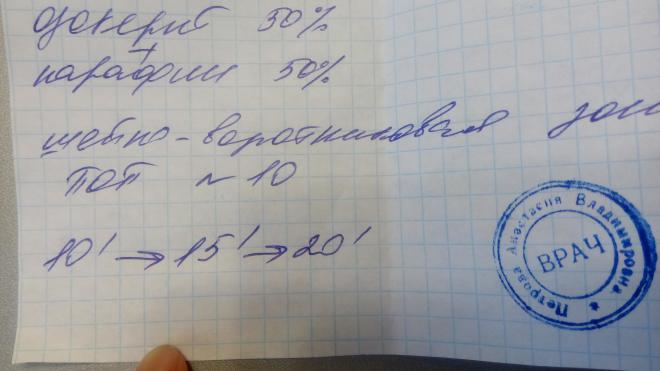 озокерит 50%
+
парафин 50%
шейно-воротниковая зон
ПОП ~ 10
10' → 15' → 20'
Петрова Анастасия Владимировна *
ВРАЧ